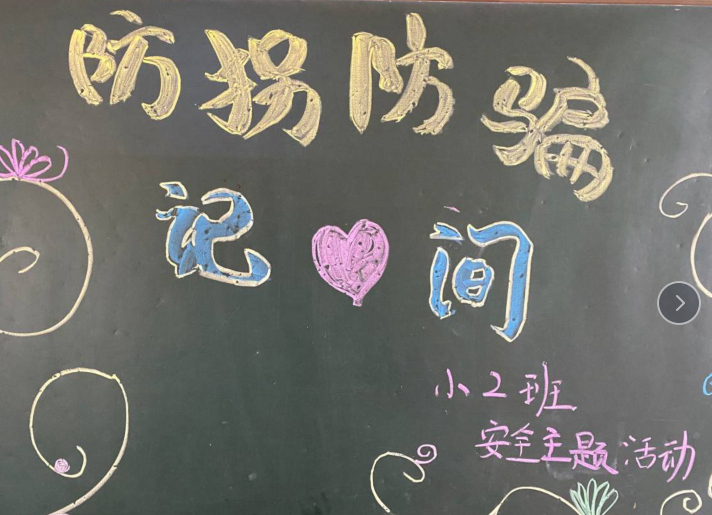 防拐防骗
记间
小2班
安全主题活动